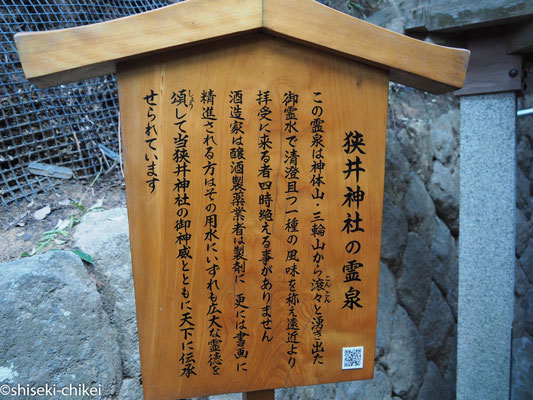 狭井神社の霊泉
この霊泉は神体山・三輪山から滾々と湧き出た
こんこん
御霊水で清澄且つ一種の風味を称え遠近より
拝受に来る者四時絶える事がありません
酒造家は醸酒製薬業者は製剤に 更には書画に
精進される方はその用水にいずれも広大な霊徳を
頌して当狭井神社の御神威とともに天下に伝承
しょう
せられています
©shiseki-chikei